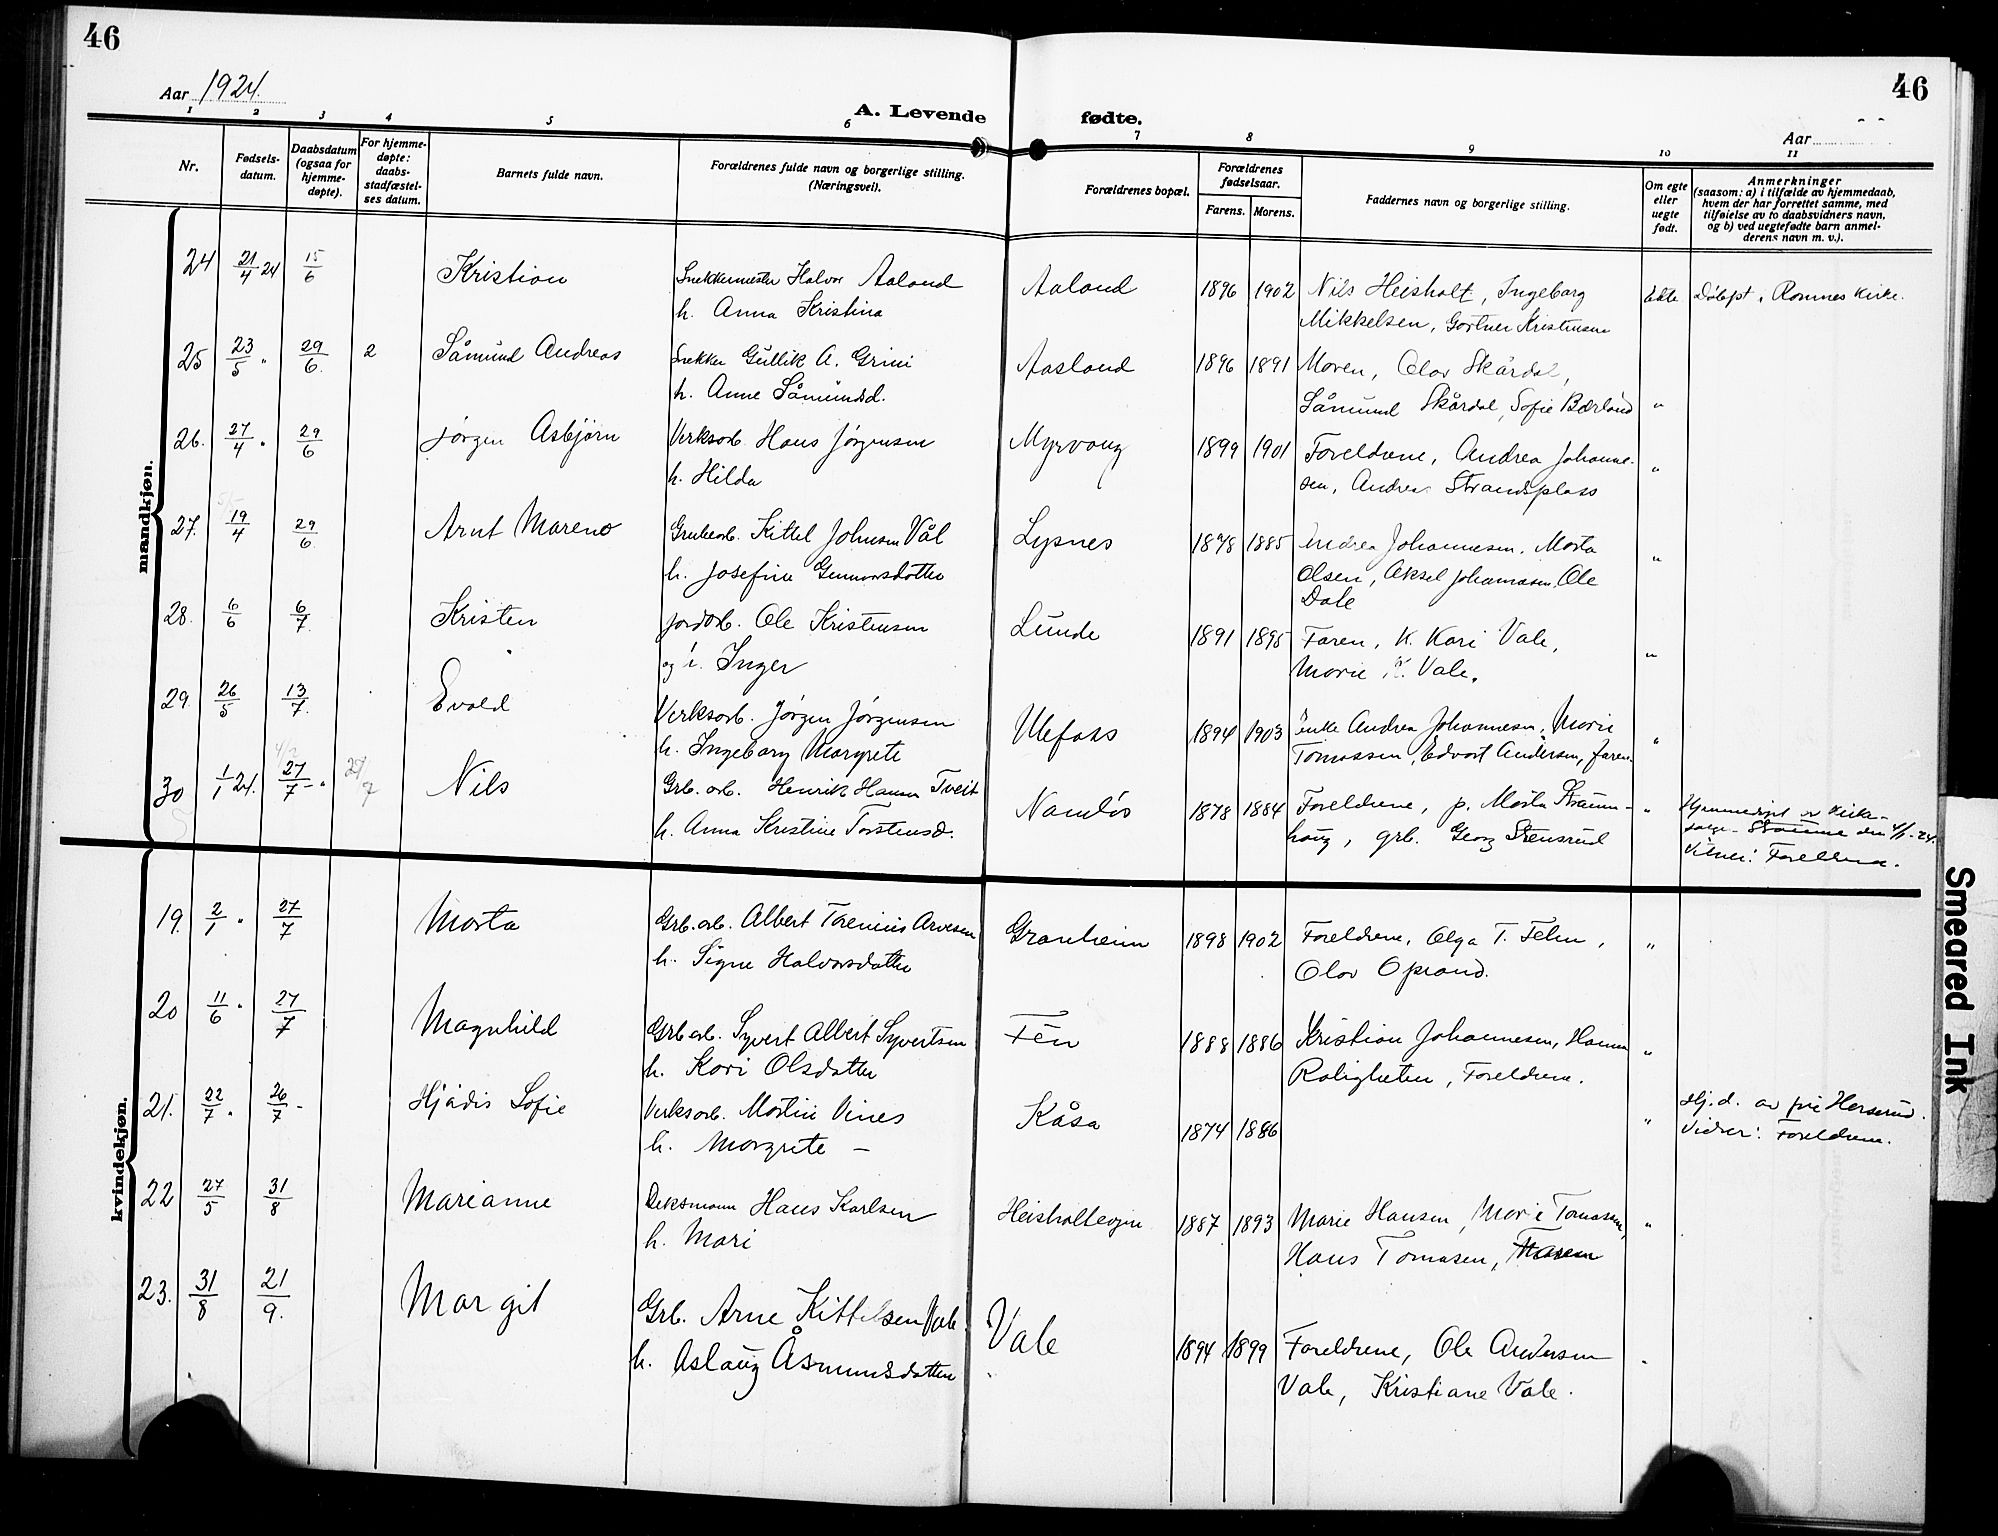 46
46
Aar 1924.
A. Levende fødte.
Aar
1 2 3 4 5 6 7 8 9 10 11
Nr.
Fødsels-
datum.
Daabsdatum
(ogsaa for
hjemme-
døpte).
For hjemme-
døpte:
daabs-
stadfæstel-
ses datum.
Barnets fulde navn.
Forældrenes fulde navn og borgerlige stilling.
(Næringsvei).
Forældrenes bopæl.
Forældrenes
fødselsaar.
Farens. Morens.
Faddernes navn og borgerlige stilling.
Om egte
eller
uegte
født.
Anmerkninger
(saasom: a) i tilfælde av hjemmedaab,
hvem der har forrettet samme, med
tilføielse av to daabsvidners navn,
og b) ved uegtefødte barn anmel-
derens navn m. v.).
mandkjøn.
24 21/4 24 15/6 Kristian Snekkermester Halvor Aaland Aaland 1896 1902 Nils Heisholt, Ingeborg Ekte Døbt i Romnes Kirke.
h. Anna Kristina Mikkelsen, Gartner Kristensen
25 23/5 " 29/6. 2 Såmund Andreas Snekker Gullik A. Grini Aasland 1896 1891 Moren, Olav Skårdal,
h. Anne Såmundsd. Såmund Skårdal, Sofie Bærland "
26. 27/4 " 29/6 Jørgen Asbjørn Verksarb. Hans Jørgensen Myrvang 1899 1901 Foreldrene, Andrea Johanne- "
h. Hilda sen, Andrea Strandsplass
27. 19/4 29/6 Arnt Mareno Grubearb. Kittel Johnsen Vål Lysnes 1878 1885 Andrea Johannesen, Marta "
h. Josefine Gunnarsdatter Olsen, Aksel Johannesen, Ole
Dale
28. 6/6 6/7. Kristen Jordarb. Ole Kristensen Lunde 1891 1895 Faren, K. Kari Vale, "
og Inger Marie K. Vale.
29. 26/5 13/7. Evald Verksarb. Jørgen Jørgensen Ulefoss 1894 1903 enke Andrea Johannesen, Marie "
h. Ingeborg Margrete Tomassen, Edvart Andersen, faren.
30 1/1 24. 27/7 27/7 Nils Grb. arb. Henrik Hansen Tveit Namløs 1878 1884 Foreldrene, p. Marta Straum- " Hjemmedøpt av Kirke-
h. Anna Kristine Torstensd. haug, grb. Georg Stensrud den 4/1-24.
Vitner: Foreldrene.
kvindekjøn.
19. 2/1 " 27/7 Marta Grb. arb. Albert Torenius Arvesen Granheim 1898 1902 Foreldrene, Olga T. Felen, "
h. Signe Halvorsdatter Olav Oprand.
20 11/6 " 27/7 Magnhild Grb arb. Syvert Albert Syvertsen Fén 1888 1886 Kristian Johannesen, Hanna "
h. Kari Olsdatter Roligheten, Foreldrene.
21. 22/7 " 26/7 - Hjådis Sofie Verksarb. Martin Vines Kåsa 1874 1886 " Hj.d. av frk Herserud.
h. Margrete — Vidner: Foreldrene.
22 27/5 31/8 Marianne Deksmann Hans Karlsen Heisholteveien 1887 1893 Marie Hansen, Marie Tomasen, "
h. Mari Hans Tomasen, Faren
23. 31/8 21/9. Margit Grb. Arne Kittelsen Vale. Vale 1894 1899 Foreldrene, Ole Andersen
h. Aslaug Åsmundsdatter Vale, Kristiane Vale.
Smeared Ink